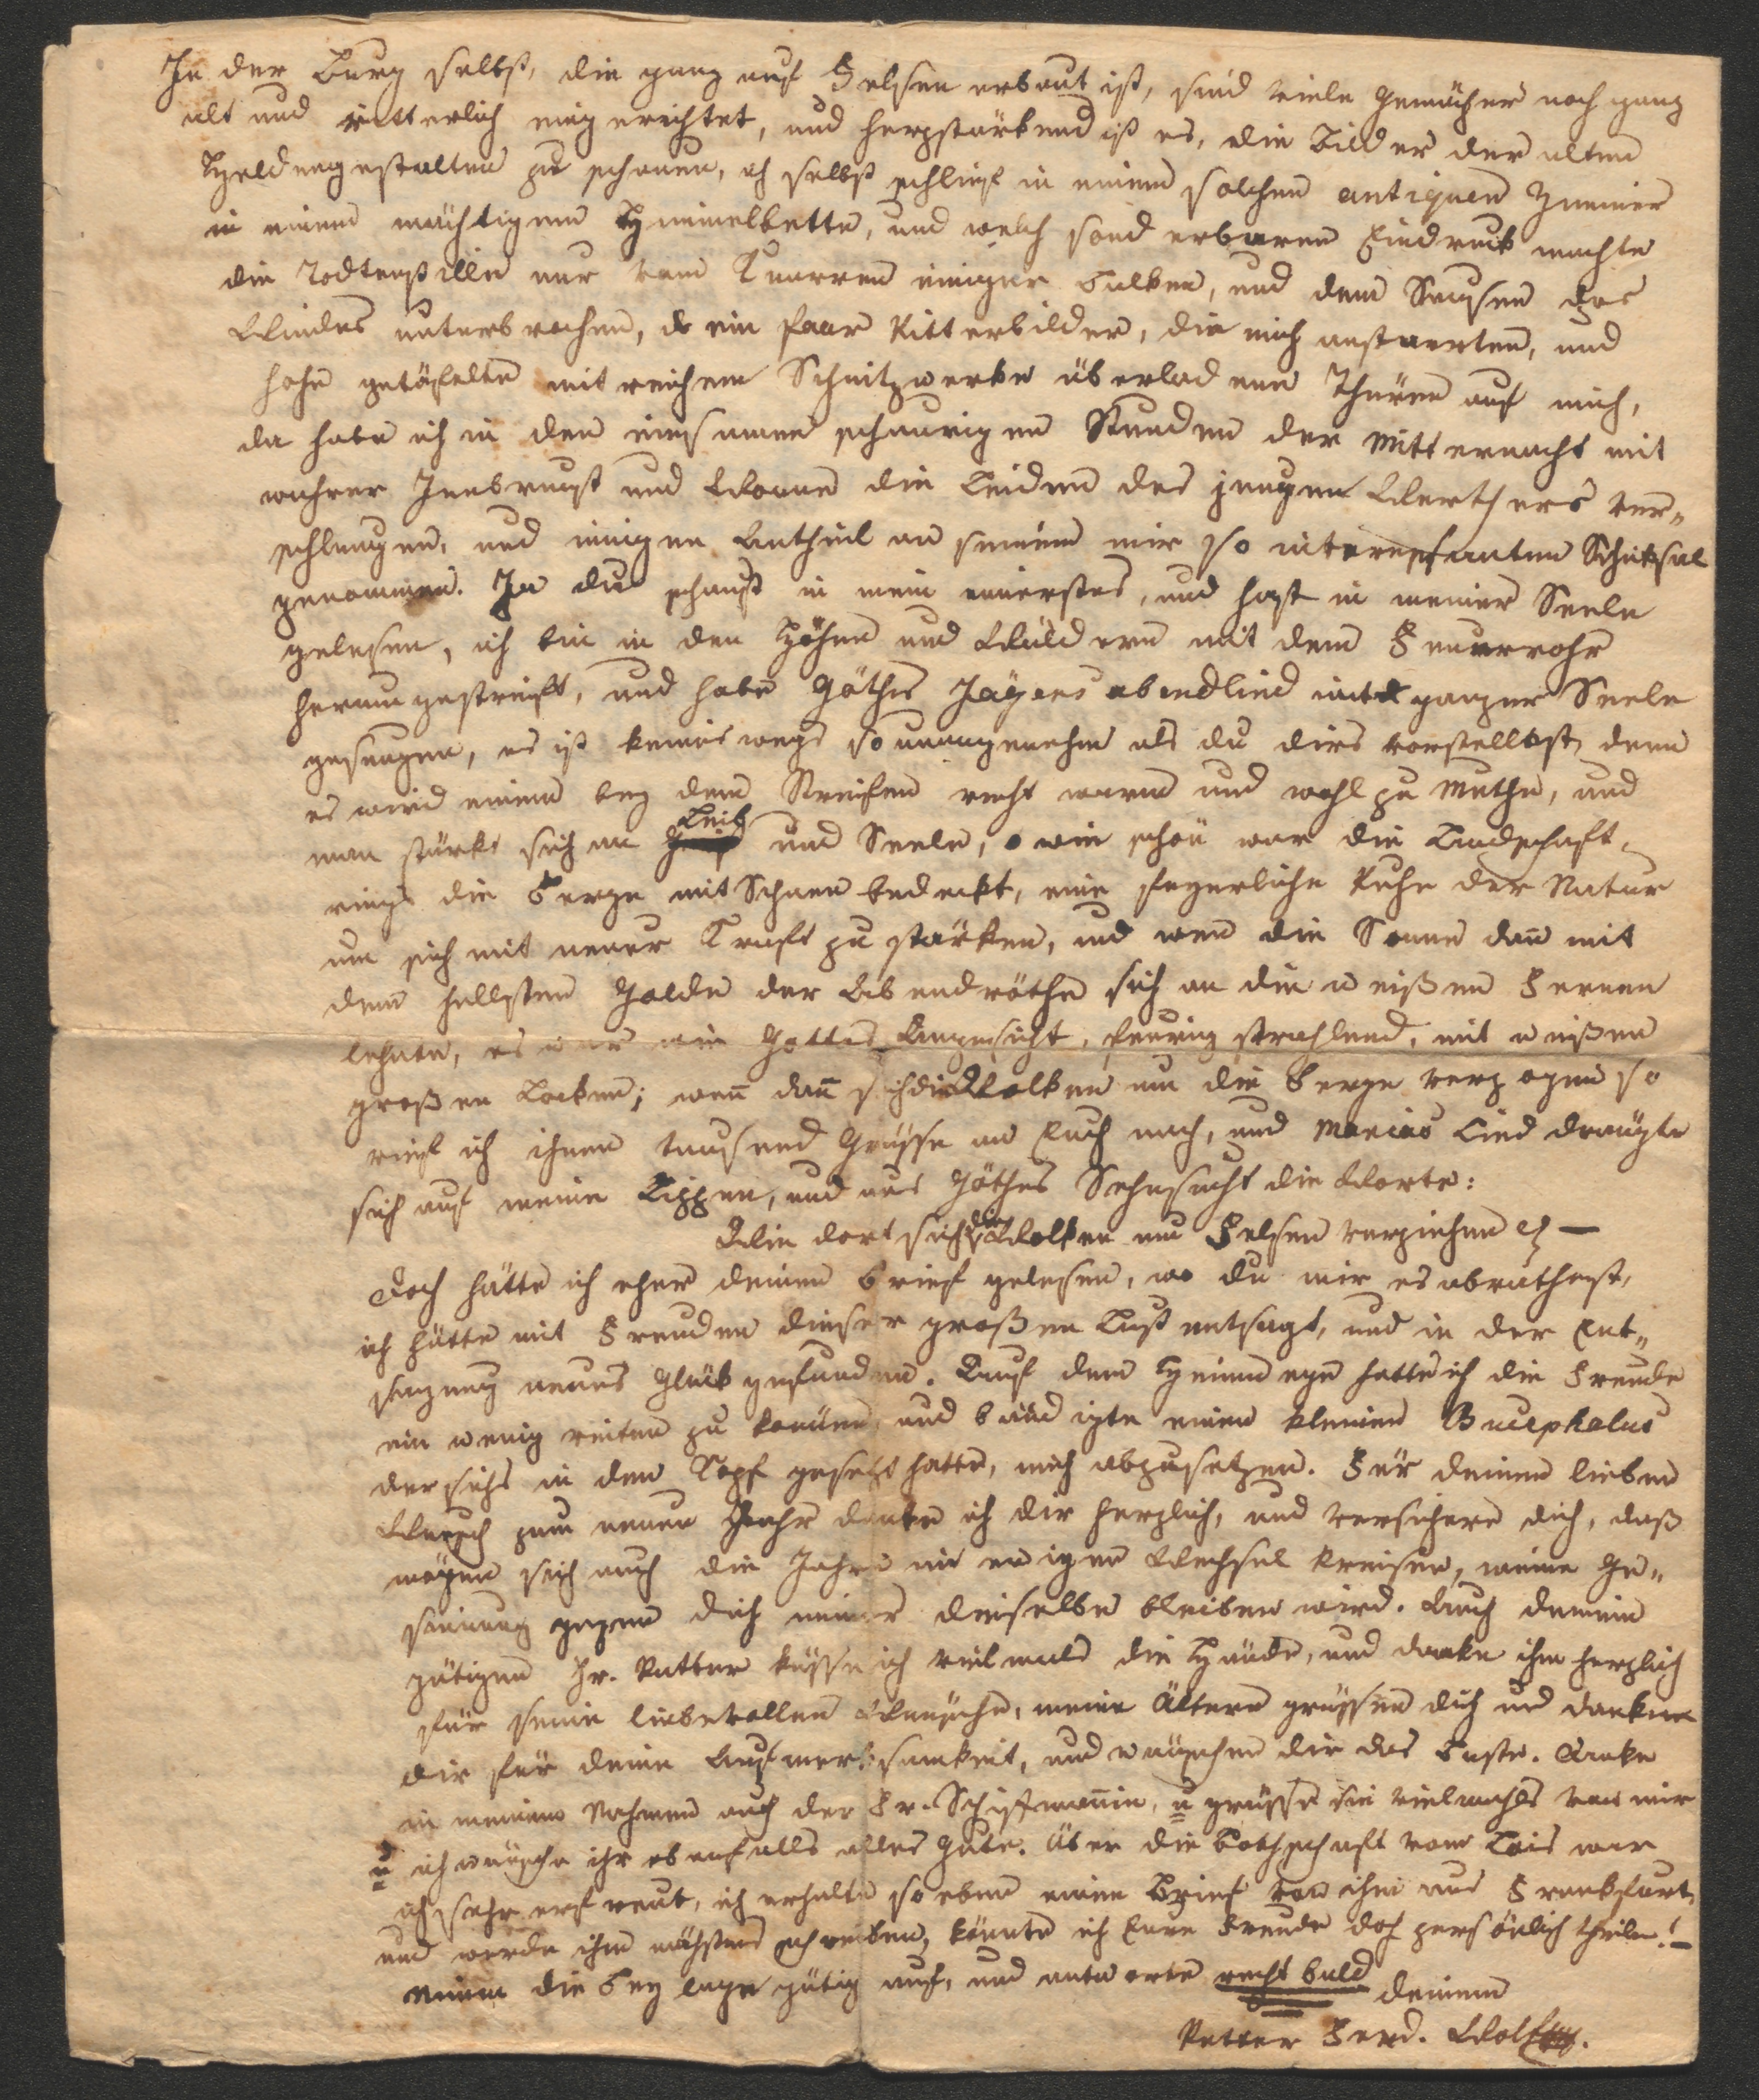 In der Burg selbst, die ganz auf Felsen erbaut ist, sind viele Gemächer noch ganz
alt und ritterlich eingerichtet, und herzstärkend ist es, die Bilder der alten
Heldengestalten zu schauen, ich selbst schlief in einem solchen antiquen Zimmer
in einem mächtigen Himmelbette, und welch sonderbaren Eindruck machte
die Todtenstille nur vom Knarren einiger Balken, und dem Sausen des
Windes unterbrochen, ein paar Ritterbilder, die mich anstarrten, und
hohe getäfelte mit reichem Schnitzwerke überladene Thüren auf mich,
da habe ich in den einsamen schaurigen Stunden der Mitternacht mit
wahrer Innbrunst und Wonne die Leiden des jungen Werthers ver„
schlungen, und innigen Antheil an seinem mir so interessanten Schiksal
genommen. Ja du schaust in mein innerstes, und hast in meiner Seele
gelesen, ich bin in den Höhen und Wäldern mit dem Feuerrohr
herumgestreift, und habe Göthes Jägers abendlied mit ganzer Seele
gesungen, es ist keineswegs so unangenehm als du dirs vorstellest, denn
es wird einem bey dem Streifen recht warm und wohl zu Muthe, und
man stärkt sich an Leib und Seele, o wie schön war die Landschaft,
rings die Berge mit Schnee bedeckt, eine feyerliche Ruhe der Natur
um sich mit neuer Kraft zu stärken, und wen die Sonne dañ mit
dem hellsten Golde der Abendröthe sich an die weißen Fernen
lehnte, es war wie Gottes Angesicht, feurig strahlend, mit weißen
großen Locken; weñ dañ sich die Wolken um die Berge verzogen so
rief ich ihnen tausend Grüsse an Euch nach, und Marias Lied drängte
sich auf meine Lippen, und aus Göthes Sehnsucht die Worte:
Wie dort sich die Wolken um Felsen verziehen ꝛc —
Doch hätte ich eher deinen Brief gelesen, wo du mir es abrathest,
ich hätte mit Freuden dieser großen Lust entsagt, und in der Ent„
sagung neues Glük gefunden. Auf dem Heimwege hatte ich die Freude
ein wenig reiten zu können, und bändigte einen kleinen Bucephalus
der sichs in den Kopf gesetzt hatte, mich abzusetzen. Für deinen lieben
Wunsch zum neuen Jahr danke ich dir herzlich, und versichere dich, daß
mögen sich auch die Jahre im ewigen Wechsel kreisen, meine Ge„
sinnung gegen dich immer dieselbe bleiben wird. Auch deinem
gütigen Hr. Vatter küsse ich vielmals die Hände, und danke ihm herzlich
für seine liebevollen Wünsche, meine Ältern grüssen dich und danken
dir für deine Aufmerksamkeit, und wünschen dir das Beste. Danke
in meinem Nahmen auch der Fr. Schiffmañin, u grüsse sie vielmahls von mir
u ich wünsche ihr ebenfalls alles Gute. Über die Bothschaft vom Lois war
ich sehr erfreut, ich erhalte so eben einen Brief von ihm aus Frankfurt,
und werde ihm nächstens schreiben, könnte ich Eure Freude doch persönlich theilen! —
Nimm die Beylage gütig auf, und antworte recht bald
deinem
Vetter Ferd. Wolf